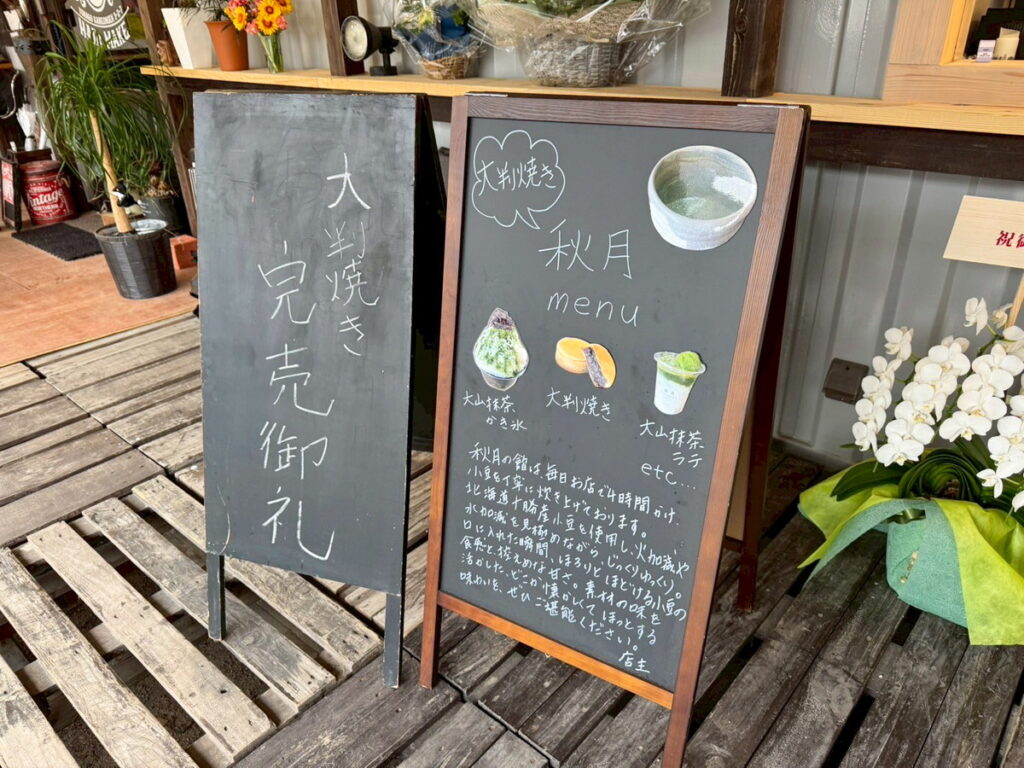 大判焼き
完売御礼
大判焼き
秋月
menu
大山抹茶
かき氷
大判焼き
大山抹茶
ラテ
etc...
秋月の餡は毎日お店で4時間かけ、
小豆を丁寧に炊き上げております。
北海道十勝産小豆を使用し、火加減や
水加減を見極めながらじっくりゆっくり。
口に入れた瞬間、ほろりとほどける小豆の
食感と、控えめな甘さ。素材の味を
活かした、どこか懐かしくてほっとする
味わいを、ぜひご堪能ください。
店主
祝
Vintage